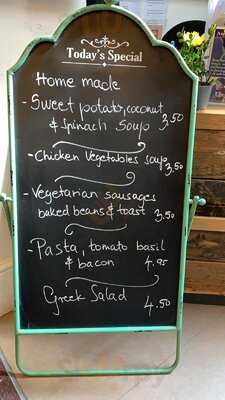 Today's Special
Home made
- Sweet potato, coconut
& Spinach Soup 3,50
- Chicken Vegetables soup
3,50
- Vegetarian sausages
baked beans & toast 3,50
- Pasta, tomato basil
& bacon 4.95
Greek Salad
4.50